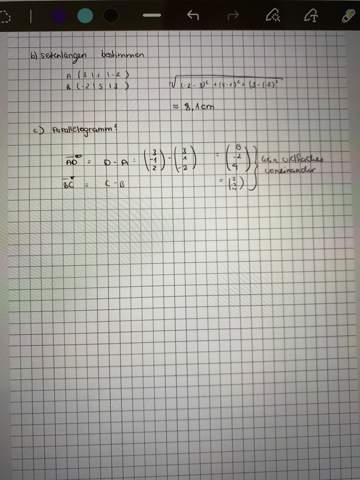 b) Seitenlängen bestimmen
A (3|1|-2)
B (-2|5|3)
√(-2-3)²+(5-1)²+(3-(-2)²
= 8,1cm
c) Parallelogramm?
AD = D - A = (3 -1 2) - (3 1 -2) = (0 -2 4)
kein vielfaches
voneinander
BC = C - B =